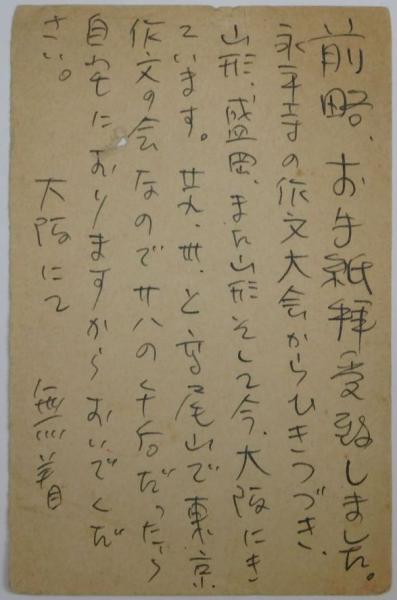 前略、お手紙拝受致しました。
永平寺の作文大会からひきつづき、
山形、盛岡、また山形そして今、大阪にき
ています。廿九、卅、と高尾山で東京
作文の会なので廿八の午后だったら
自宅におりますからおいでくだ
さい。
大阪にて 無着